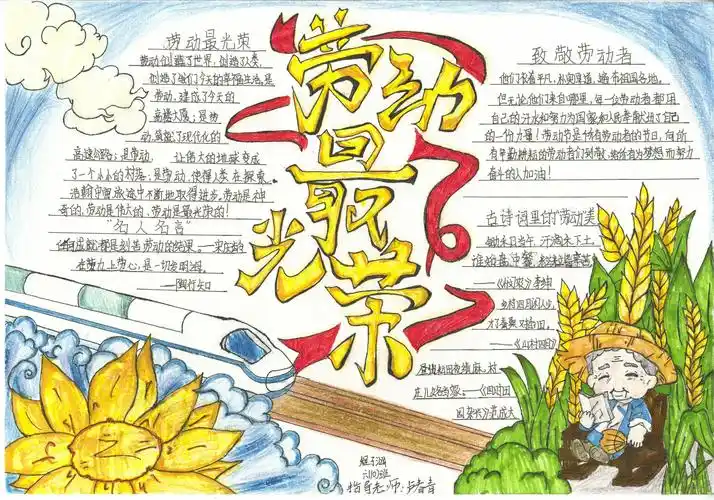 劳动最光荣
劳动最光荣
劳动创造了世界，创造了人类，
创造了我们今天的幸福生活。是
劳动，建成了今天的
高楼大厦；是劳
动，筑就了现代化的
高速公路；是劳动，让偌大的地球变成
了一个小小的村落；是劳动，使得人类在探索
浩翰宇宙旅途中不断地取得进步。劳动是神
奇的，劳动是伟大的，劳动是最光荣的！
"名人名言"
在劳力上劳心，是一切发明之母。
——陶行知
致敬劳动者
他们来自平凡，
但无论他们来自哪里，每一位劳动者都用
自己的汗水和努力为国家和人民奉献出了自己
的一份力量！劳动节是所有劳动者的节日，向所
有辛勤耕耘的劳动者们致敬，给所有为梦想而努力
奋斗的人加油！
古诗词里的"劳动美"
锄禾日当午，汗滴禾下土。
谁知盘中餐，粒粒皆辛苦。
——《悯农》李绅
乡村四月闲人少，
才了蚕桑又插田。
——《乡村四月》
昼出耘田夜绩麻，村
庄儿女各当家。——《四时田
园杂兴》范成大
指导老师：